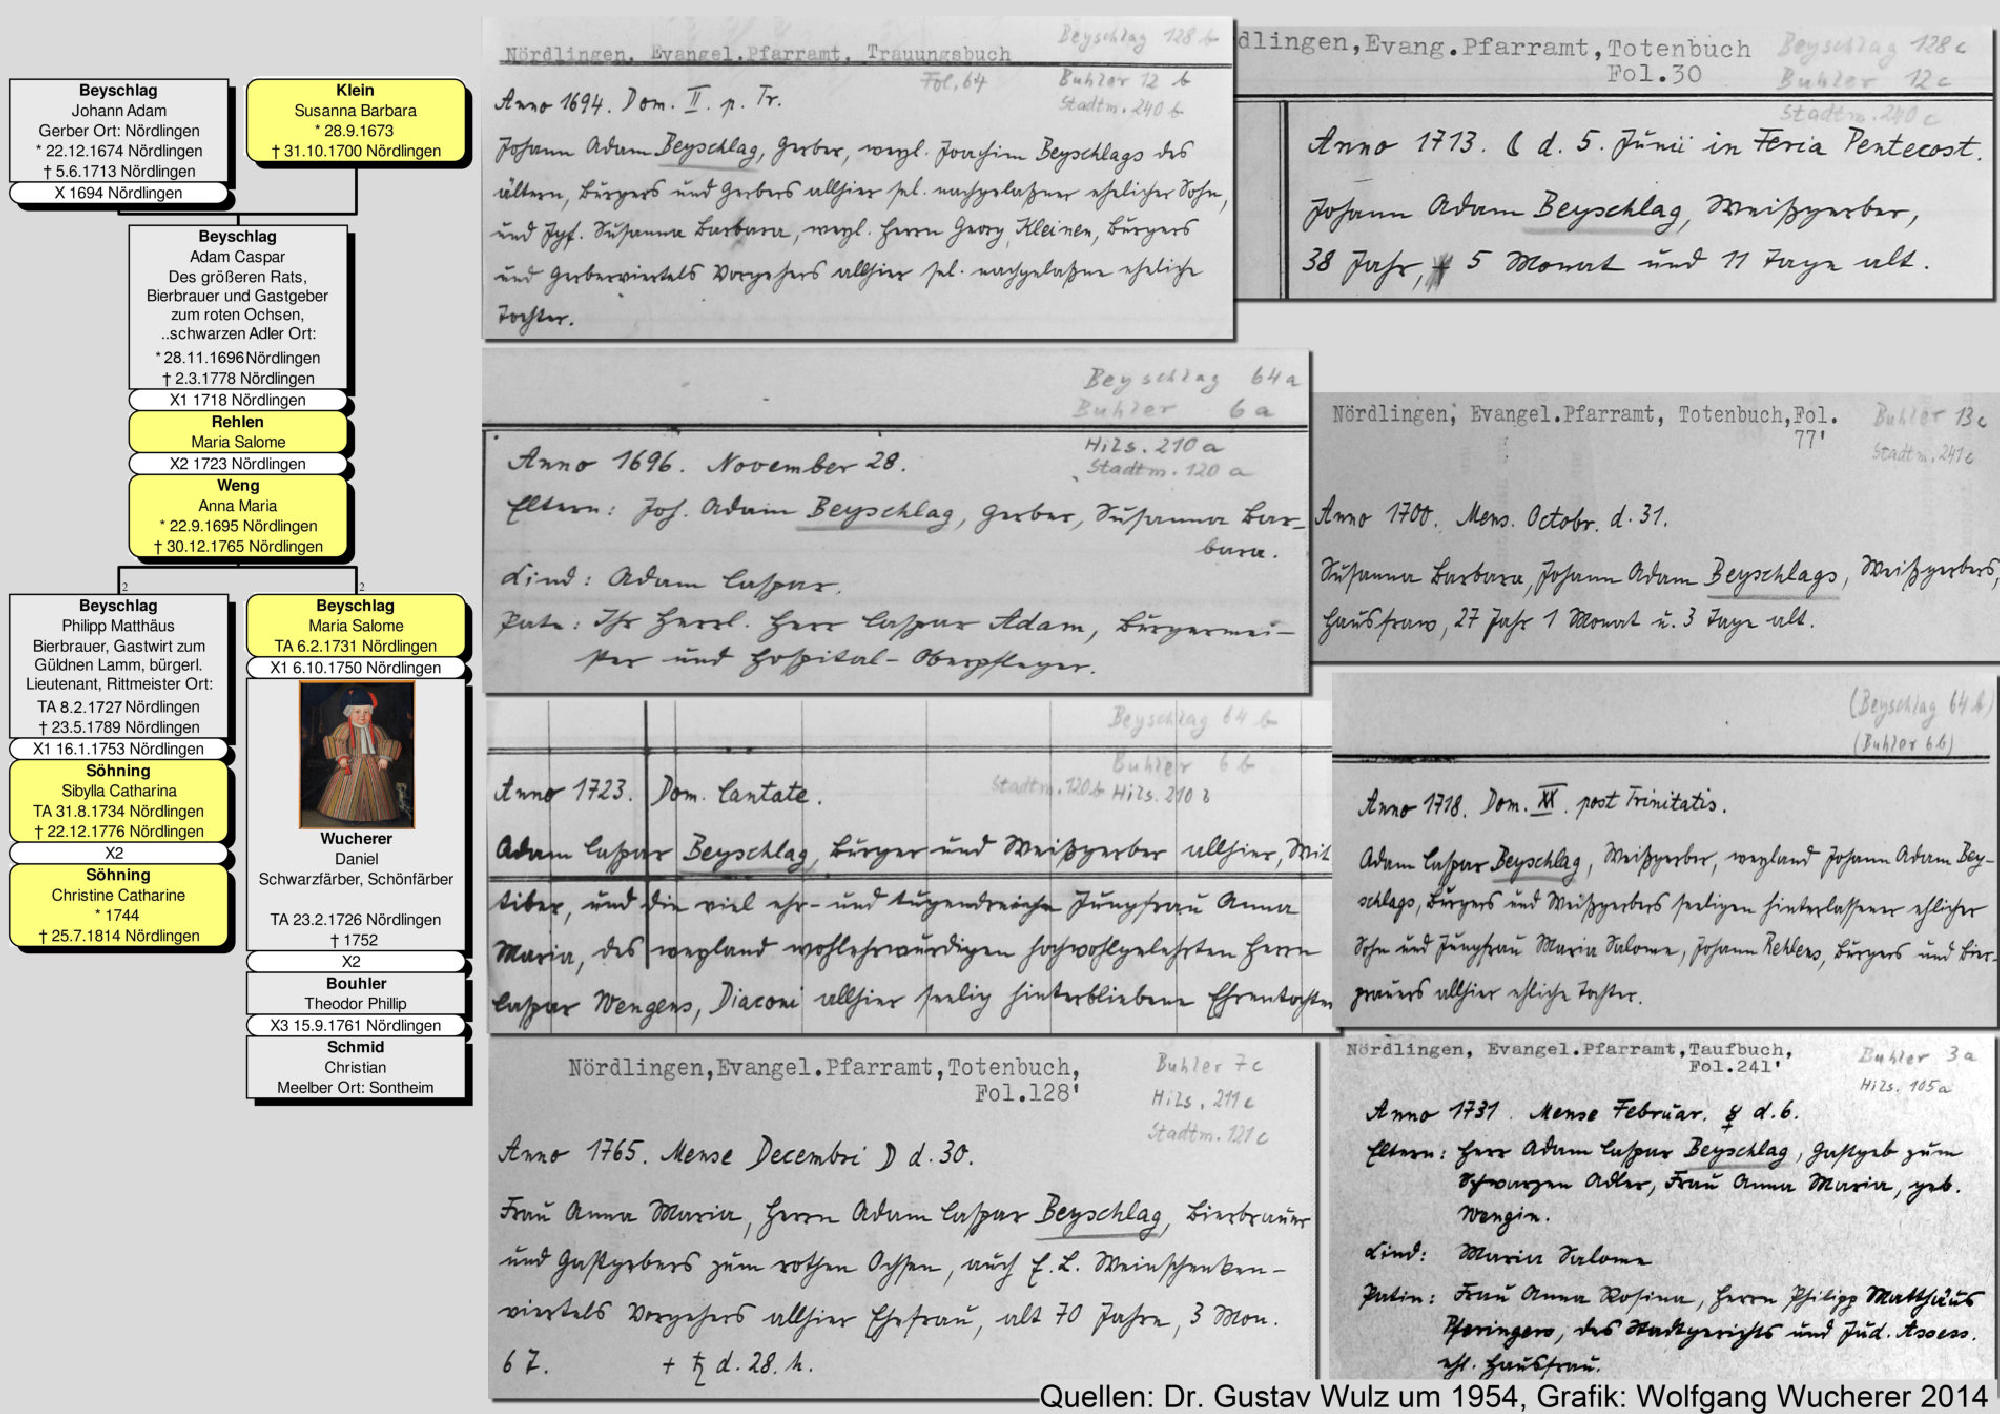 Beyschlag
Johann Adam
Gerber Ort: Nördlingen
* 22.12.1674 Nördlingen
† 5.6.1713 Nördlingen
X 1694 Nördlingen
Klein
Susanna Barbara
* 28.9.1673
† 31.10.1700 Nördlingen
Beyschlag
Adam Caspar
Des größeren Rats,
Bierbrauer und Gastgeber
zum roten Ochsen,
..schwarzen Adler Ort:
* 28.11.1696 Nördlingen
† 2.3.1778 Nördlingen
X1 1718 Nördlingen
Rehlen
Maria Salome
X2 1723 Nördlingen
Weng
Anna Maria
* 22.9.1695 Nördlingen
† 30.12.1765 Nördlingen
2
2
Beyschlag
Philipp Matthäus
Bierbrauer, Gastwirt zum
Güldnen Lamm, bürgerl.
Lieutenant, Rittmeister Ort:
TA 8.2.1727 Nördlingen
† 23.5.1789 Nördlingen
X1 16.1.1753 Nördlingen
Söhning
Sibylla Catharina
TA 31.8.1734 Nördlingen
† 22.12.1776 Nördlingen
X2
Söhning
Christine Catharine
* 1744
† 25.7.1814 Nördlingen
Beyschlag
Maria Salome
TA 6.2.1731 Nördlingen
X1 6.10.1750 Nördlingen
Wucherer
Daniel
Schwarzfärber, Schönfärber
TA 23.2.1726 Nördlingen
† 1752
X2
Bouhler
Theodor Phillip
X3 15.9.1761 Nördlingen
Schmid
Christian
Meelber Ort: Sontheim
Nördlingen, Evangel.Pfarramt, Trauungsbuch
Fol. 64
Beyschlag 128 b
Buhler 12 b
Stadtm. 240 b
Anno 1694. Dom. II. p. Tr.
Johann Adam Beyschlag, Gerber, weyl. Joachim Beyschlags des
ältern, Bürgers und Gerbers allhier sel. nachgelaßner ehelicher Sohn,
und Jgf. Susanna Barbara, weyl. Herrn Georg Kleinen, Bürgers
und Gerberviertels Vorgehers allhier sel. nachgelaßne eheliche
Tochter.
dlingen, Evang.Pfarramt, Totenbuch
Fol.30
Beyschlag 128 c
Buhler 12 c
Stadtm. 240 c
Anno 1713. d. 5. Junii in Feria Pentecost.
Johann Adam Beyschlag, Weißgerber,
38 Jahr, 5 Monat und 11 Tage alt.
Beyschlag 64 a
Buhler 6 a
Hils. 210 a
Stadtm. 120 a
Anno 1696. November 28.
Eltern: Joh. Adam Beyschlag, Gerber, Susanna Bar-
bara.
Kind: Adam Caspar.
Pate: Ihr Herrl. Herr Caspar Adam, Bürgermei-
ster und Hospital-Oberpfleger.
Nördlingen, Evangel.Pfarramt, Totenbuch, Fol.
77'
Buhler 13 c
Stadtm. 241 c
Anno 1700. Mens. Octobr. d. 31.
Susanna Barbara, Johann Adam Beyschlags, Weißgerbers,
Hausfraw, 27 Jahr 1 Monat u. 3 Tage alt.
Beyschlag 64 b
Buhler 6 b
Stadtm. 120 b Hils. 210 b
Anno 1723. Dom. Cantate.
Adam Caspar Beyschlag, Bürger und Weißgerber allhier, Wit
tiber, und die viel ehr- und tugendreiche Jungfrau Anna
Maria, des weyland wohlehrwürdigen hochwohlgelehrten Herrn
Caspar Wengens, Diaconi allhier seelig hinterbliebene Ehrentochter
(Beyschlag 64 b)
(Buhler 6 b)
Anno 1718. Dom. XX. post Trinitatis.
Adam Caspar Beyschlag, Weißgerber, weyland Johann Adam Bey-
schlags, Bürgers und Weißgerbers seeligen hinterlassener ehlicher
Sohn und Jungfrau Maria Salome, Johann Rehlens, Bürgers und Bier-
brauers allhier ehliche Tochter.
Nördlingen, Evangel.Pfarramt, Totenbuch,
Fol.128'
Buhler 7 c
Hils. 211 c
Stadtm. 121 c
Anno 1765. Mense Decembri d. 30.
Frau Anna Maria, Herrn Adam Caspar Beyschlag, Bierbrauer
und Gastgebers zum rothen Ochsen, auch E. L. Weinschenken-
viertels Vorgehers allhier Ehefrau, alt 70 Jahre, 3 Mon.
6 T. + d. 28. h.
Nördlingen, Evangel.Pfarramt, Taufbuch,
Fol.241'
Buhler 3 a
Hils. 105 a
Anno 1731. Mense Februar. d. 6.
Eltern: Herr Adam Caspar Beyschlag, Gastgeb zum
Schwarzen Adler, Frau Anna Maria, geb.
Wengin.
Kind: Maria Salome
Patin: Frau Anna Rosina, Herrn Philipp Matthäus
des Stadtgerichts und Jud. Assess.
ehl. Hausfrau.
Quellen: Dr. Gustav Wulz um 1954, Grafik: Wolfgang Wucherer 2014